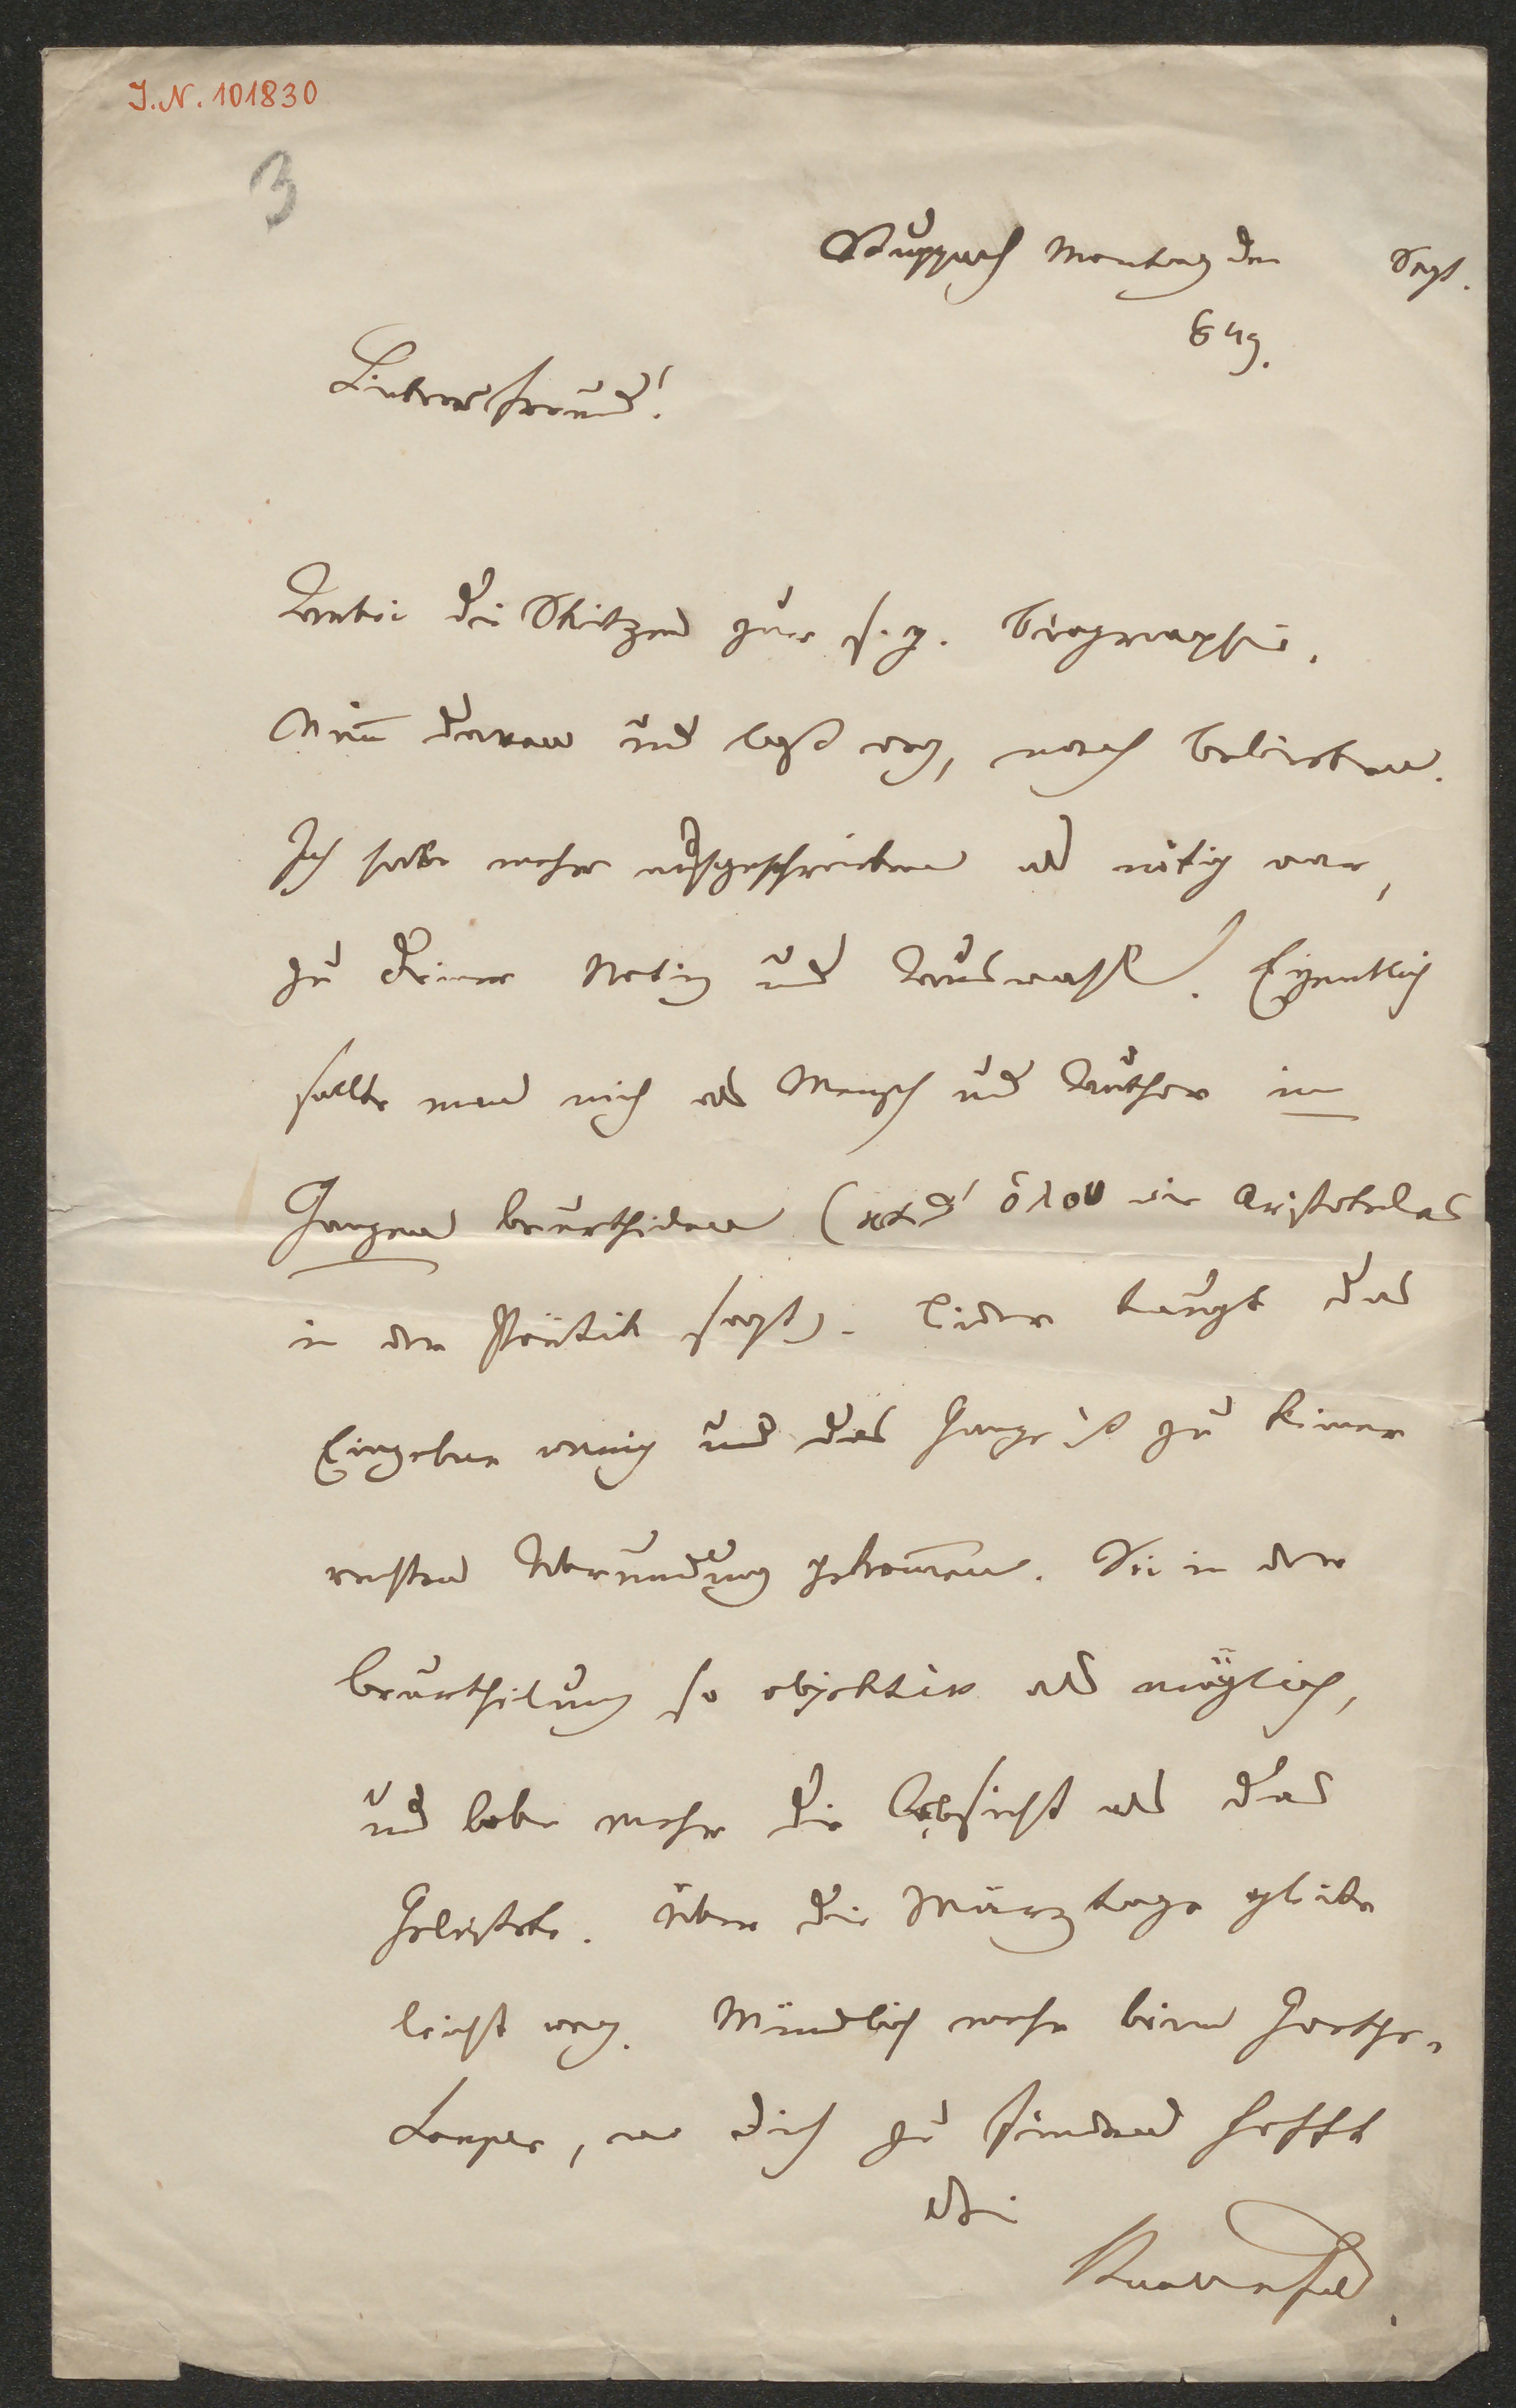 J.N. 101830
3
Stuppach Montag den Sept.
849.
Lieber Freund!
Anbei die Skitzen zur s. g. Biographie.
Nim̄ davon und laß weg, nach Belieben.
Ich habe mehr aufgeschrieben als nötig war,
zu Deiner Notiz und Auswahl. Eigentlich
sollte man mich als Mensch und Author im
Ganzen beurtheilen (καθ' ὅλου wie Aristoteles
in der Poëtik sagt). Leider taugt das
Einzelne wenig und das Ganze ist zu keiner
rechten Abrundung gekom̄en. Sei in der
Beurtheilung so objektiv als möglich,
und lobe mehr die Absicht als das
Geleistete. Über die Märztage gleite
leicht weg. Mündlich mehr beim Goethe-
, wo Dich zu finden hofft
Dein
Bauernfeld.